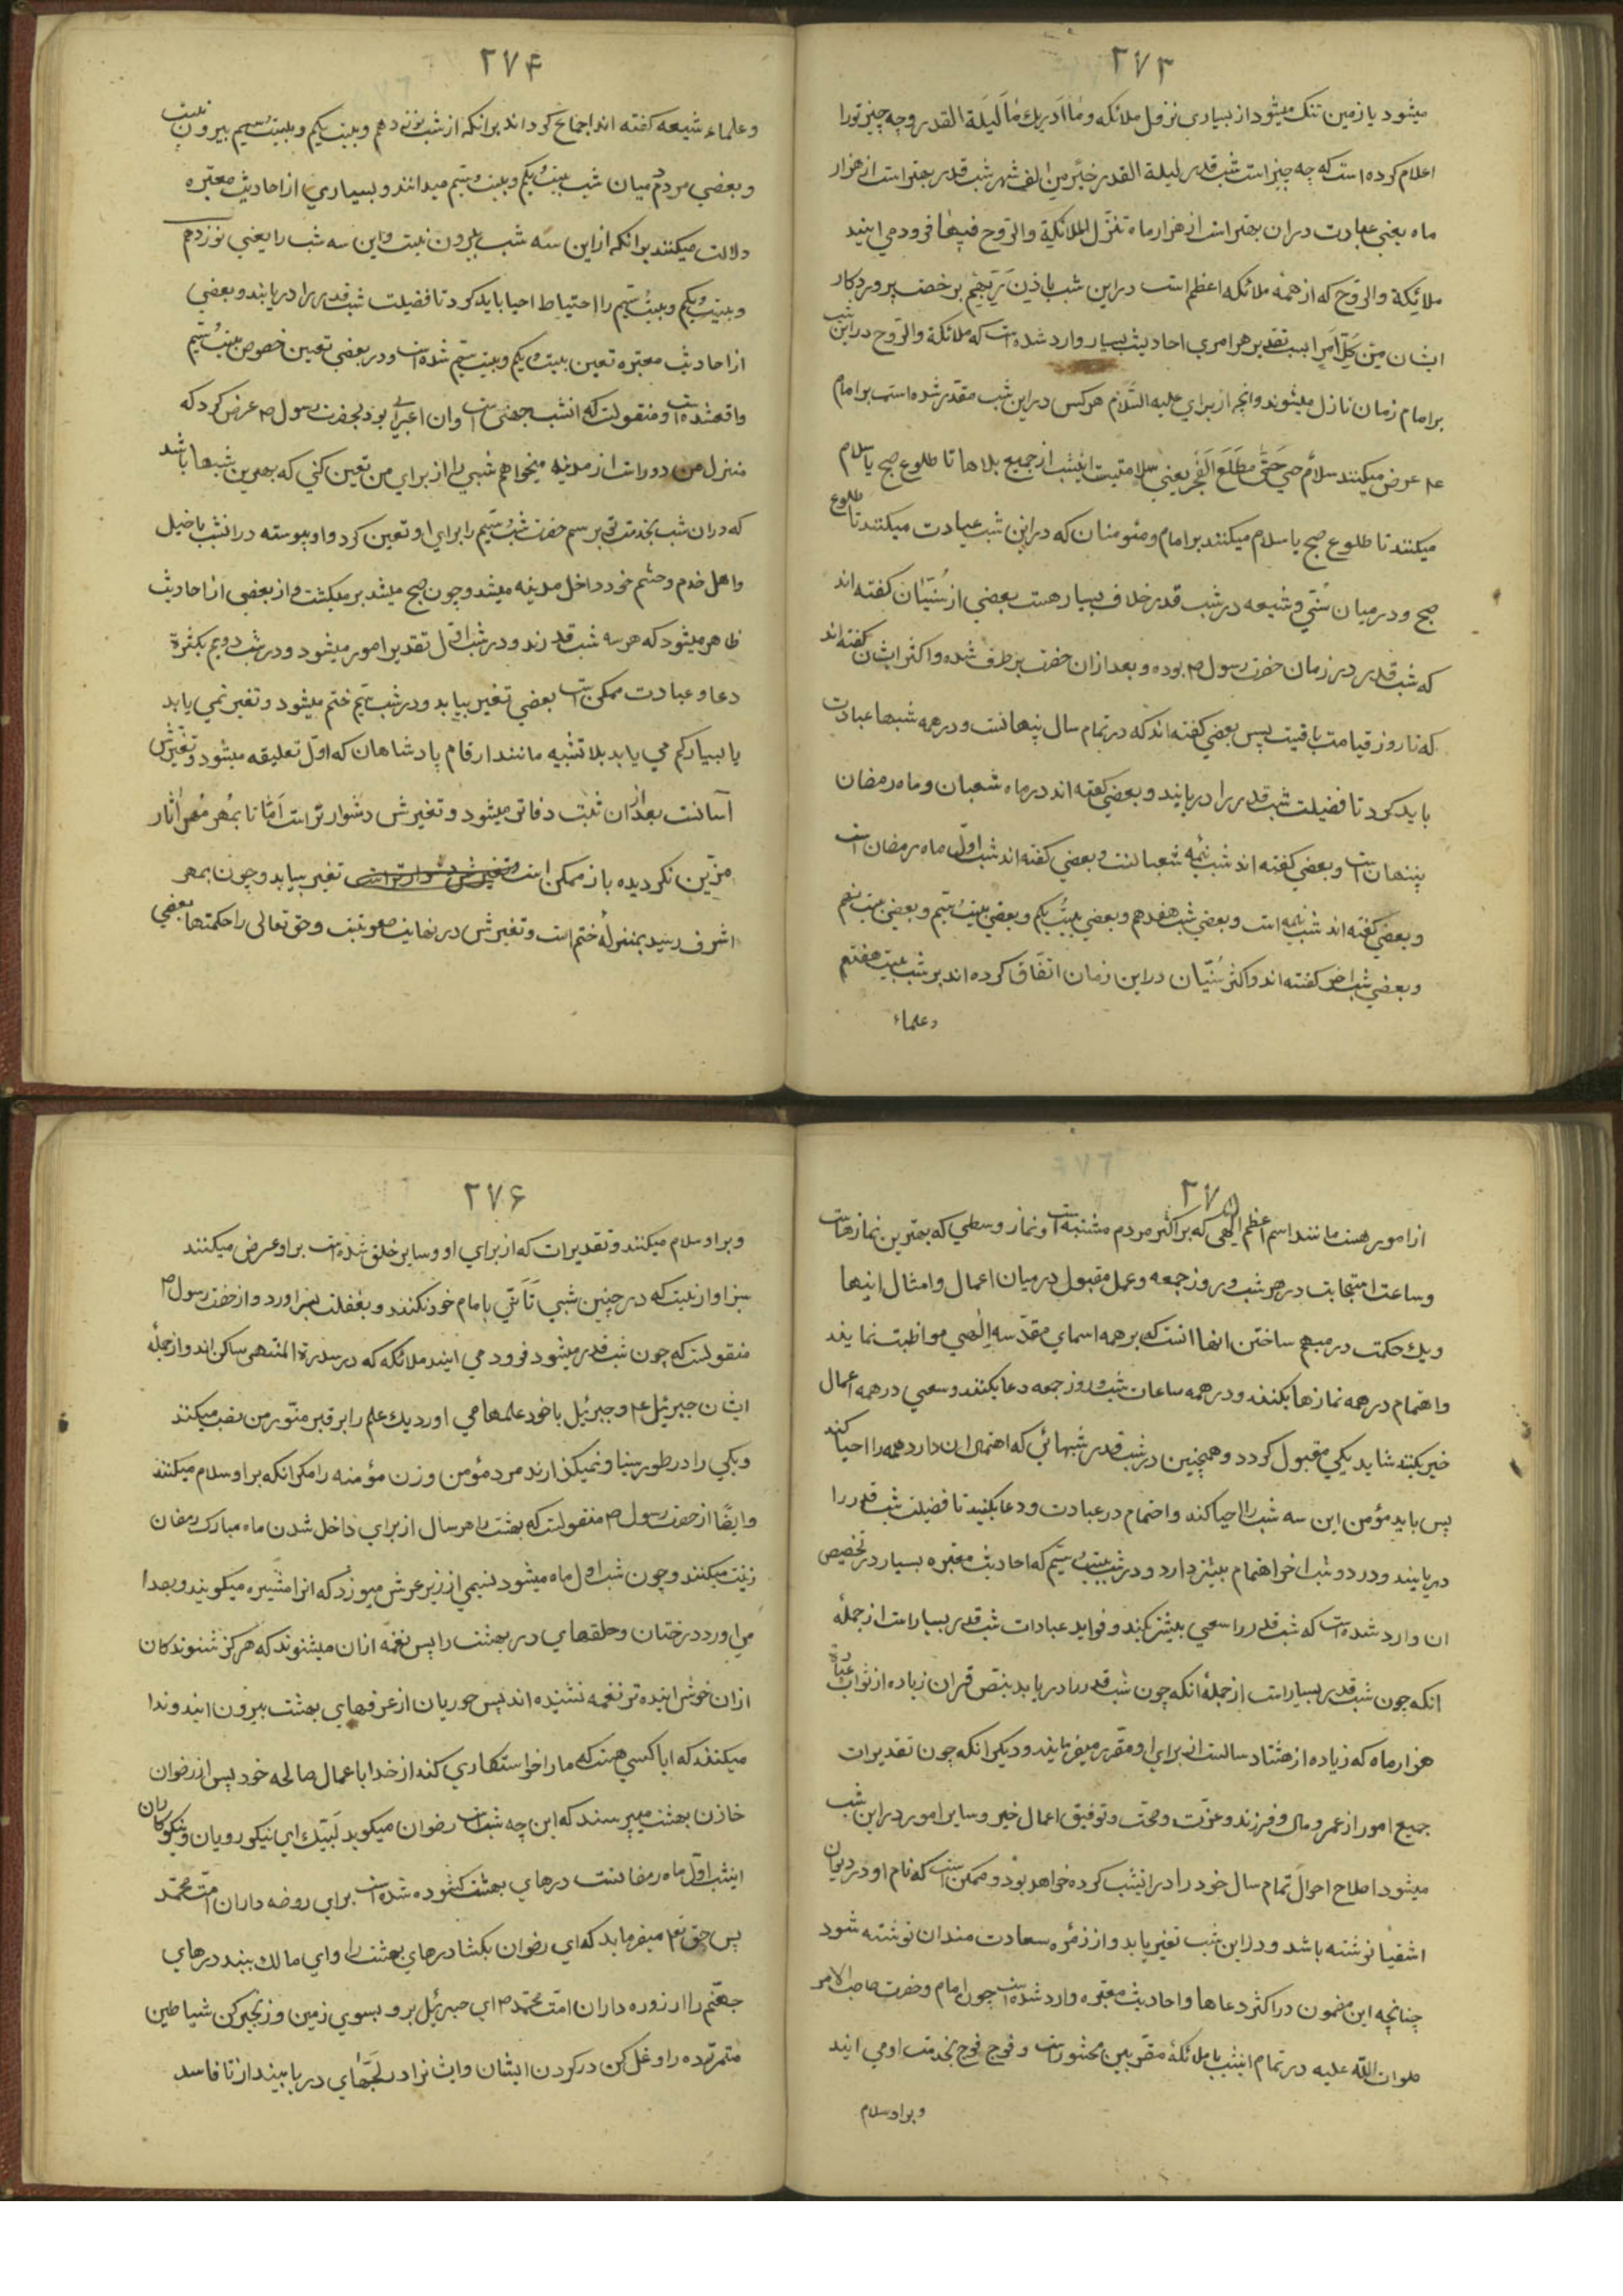 ۲۷۳
میشود یا زمین تنک میشود از بسیاری نزول ملائکه و ما ادریک ما لیلة القدر و چه چیز تورا
اعلام کرده است که چه چیز است شب قدر لیلة القدر خیر من الف شهر شب قدر بهتر است از هزار
ماه یعنی عبادت در ان بهتر است از هزار ماه تنزل الملائکة والروح فیها فرود می ایند
ملائکة والروح که از همه ملائکه اعظم است در این شب باذن ربهم برخصت پروردکار
ایشان من کل امر ا بسبب تقدیر هر امری احادیث بسیار وارد شده است که ملائکة والروح در این شب
بر امام زمان نازل میشوند وانچه از برای علیه السلام هر کس در این شب مقدر شده است بر امام
عم عرض میکنند سلام هی حتی مطلع الفجر یعنی سلامتیست اینشب از جمیع بلاها تا طلوع صبح یا سلام
میکنند تا طلوع صبح یا سلام میکنند بر امام و مئومنان که در این شب عبادت میکنند تا طلوع
صبح و در میان سنی و شیعه در شب قدر خلاف بسیار هست بعضی از سنیان کفته اند
که شب قدر در زمان حضرت رسول ص بوده و بعد از ان حضرت بر طرف شده و اکثر ایشان کفته اند
که تا روز قیامت باقیست پس بعضی کفته اند که در تمام سال پنهانست و در همه شبها عبادت
باید کرد تا فضیلت شب قدر را دریابند و بعضی کفته اند در ماه شعبان و ماه رمضان
پنهان است و بعضی کفته اند شب نیمه شعبانست و بعضی کفته اند شب اول ماه رمضان است
و بعضی کفته اند شب نیمه است و بعضی شب هفدهم و بعضی بیست یکم و بعضی بیست سیم و بعضی بیست پنجم
و بعضی شب اخر کفته اند و اکثر سنیان در این زمان اتفاق کرده اند بر شب بیست هفتم
وعلماء
۲۷۴
وعلماء شیعه کفته اند اجماع کرده اند برانکه از شب نوزدهم و بیست یکم و بیست سیم بیرون نیست
و بعضی مردم میان شب بیست و یکم و بیست و سیم میدانند و بسیاری از احادیث معتبره
دلالت میکنند برانکه از این سه شب بیرون نیست و این سه شب را یعنی نوزدهم
و بیست و یکم و بیست سیم را احتیاط احیا باید کرد تا فضیلت شب قدر را دریابند و بعضی
از احادیث معتبره تعین بیست و یکم و بیست سیم شده است و در بعضی تعین خصوص بیست سیم
واقعشده است و منقولست که انشب جهنی است وان اعرابی بود بحضرت رسول ص عرض کرد که
منزل من دور است از مدینه میخواهم شبی را از برای من تعین کنی که بهترین شبها باشد
که در ان شب بخدمت تو برسم حضرت شب سیم را برای او تعین کرد و او پیوسته در انشب با خیل
و اهل خدم و حشم خود داخل مدینه میشد و چون صبح میشد بر میکشت و از بعضی از احادیث
ظاهر میشود که هر سه شب قدرند و در شب اول تقدیر امور میشود و در شب دویم بکثرة
دعا و عبادت ممکن است بعضی تغیر بیابد و در شب سیم ختم میشود و تغیر نمی یابد
یا بسیار کم می یابد بلاتشبیه مانند ارقام پادشاهان که اول تعلیقه میشود و تغیرش
آسانست بعد از ان ثبت دفاتر میشود و تغیرش دشوار تر است اما تا بمهر مهر اثار
مزین نکردیده باز ممکن است و تغیرش دشوار تر است تغیر بیابد و چون بمهر
اشرف رسید بمنزله ختم است و تغیرش در نهایت صعوبتست و حق تعالی را حکمتها بعضی
۲۷۵
از امور هست مانند اسم اعظم الهی که بر اکثر مردم مشتبه است و نماز وسطی که بهترین نمازهاست
و ساعت استجابت در هر شب و روز جمعه و عمل مقبول در میان اعمال و امثال اینها
و یک حکمت در مبهم ساختن انها انست که بر همه اسمای مقدسه الهی مواظبت نمایند
و اهتمام در همه نمازها بکنند و در همه ساعات شب و روز جمعه دعا بکنند و سعی در همه اعمال
خیر بکنند شاید یکی مقبول کردد و همچنین در شب قدر شبهائی که احتمال ان دارد همه را احیا کند
پس باید مؤمن این سه شب را احیا کند و اهتمام در عبادت و دعا بکنید تا فضیلت شب قدر را
دریابیند و در دو شب اخر اهتمام بیشتر دارد و در شب بیست سیم که احادیث معتبره بسیار در تخصیص
ان وارد شده است که شب قدر را سعی بیشتر بکند و فواید عبادات شب قدر بسیار است از جمله
انکه چون شب قدر بسیار است از جمله انکه چون شب قدر را دریابد بنص قران زیاده از ثواب عبادة
هزار ماه که زیاده از هشتاد سالست از برای او مقرر میفرمایند و دیکر انکه چون تقدیرات
جمیع امور از عمر و مال و فرزند و عزت و صحت و توفیق اعمال خیر و سایر امور در این شب
میشود اصلاح احوال تمام سال خود را در اینشب کرده خواهد بود و ممکن است که نام او در دیوان
اشقیا نوشته باشد و در این شب تغیر یابد و از زمره سعادت مندان نوشته شود
چنانچه این مضمون در اکثر دعاها و احادیث معتبره وارد شده است چون امام و حضرت صاحب الامر
صلوات الله علیه در تمام اینشب با ملائکة مقربین محشور است و فوج فوج بخدمت او می ایند
وبراوسلام
۲۷۶
و براو سلام میکنند و تقدیرات که از برای او و سایر خلق شده است براو عرض میکنند
سزاوار نیست که در چنین شبی تأسی بامام خود نکنند و بغفلت بسر اورد و از حضرت رسول ص
منقولست که چون شب قدر میشود فرود می ایند ملائکه که در سدرة المنتهی ساکن اند و از جمله
ایشان جبرئیل عم و جبرئیل با خود علمها می اورد یک علم را بر قبر منور من نصب میکند
و یکی را در طور سینا و نمیکذارند مرد مؤمن و زن مؤمنه را مکر انکه براو سلام میکنند
و ایضا از حضرت رسول ص منقولست که بهشت را هر سال از برای داخل شدن ماه مبارک رمضان
زینت میکنند و چون شب اول ماه میشود نسیمی از زیر عرش میوزد که انرا مثیره میکویند و بصدا
می اورد درختان و حلقهای در بهشت را پس نغمه از ان میشنوند که هرکز شنوندکان
از ان خوش اینده تر نغمه نشنیده اند پس حوریان از غرفهای بهشت بیرون ایند و ندا
میکنند که ایا کسی هست که مارا خواستکاری کند از خدا با عمال صالحه خود پس از رضوان
خازن بهشت میپرسند که این چه شب است رضوان میکوید لبیک ای نیکو رویان و نیکوکاران
اینشب اول ماه رمضانست درهای بهشت کشوده شده است برای روضه داران امت محمد
پس حق تعم میفرماید که ای رضوان بکشا درهای بهشت را و ای مالک ببند درهای
جهنم را از روزه داران امت محمد ص ای جبرئیل برو بسوی زمین و زنجیر کن شیاطین
متمرده را و غل کن در کردن ایشان و ایشانرا در لجهای دریا بینداز تا فاسد